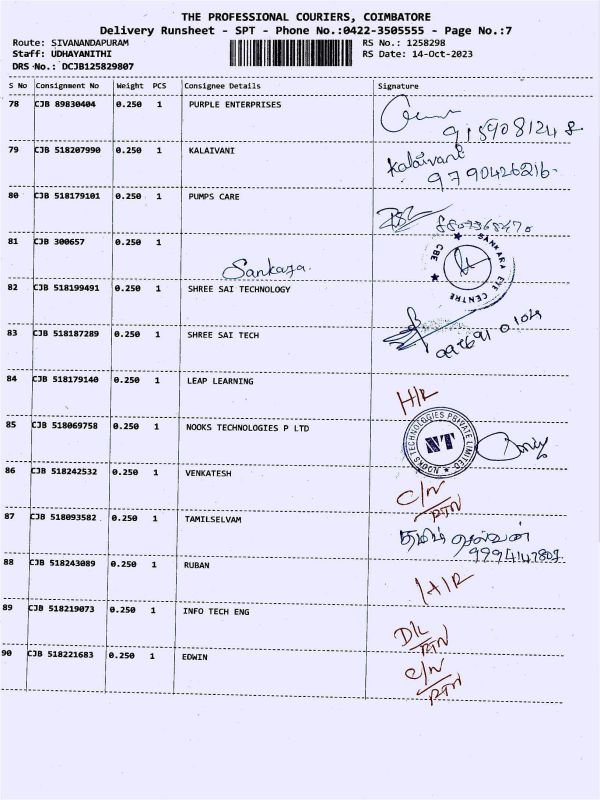 THE PROFESSIONAL COURIERS, COIMBATORE
Delivery Runsheet - SPT - Phone No.:0422-3505555 - Page No.:7
Route: SIVANANDAPURAM RS No.: 1258298
Staff: UDHAYANITHI RS Date: 14-Oct-2023
DRS No.: DCJB125829807
S No Consignment No Weight PCS Consignee Details Signature
78 CJB 89830404 0.250 1 PURPLE ENTERPRISES
9159081248
79 CJB 518207990 0.250 1 KALAIVANI Kalaivani
9790426216.
80 CJB 518179101 0.250 1 PUMPS CARE
81 CJB 300657 0.250 1
Sankara. SANKARA EYE CENTRE CBE
82 CJB 518199491 0.250 1 SHREE SAI TECHNOLOGY
83 CJB 518187289 0.250 1 SHREE SAI TECH
84 CJB 518179140 0.250 1 LEAP LEARNING H/R
85 CJB 518069758 0.250 1 NOOKS TECHNOLOGIES P LTD NOOKS TECHNOLOGIES PRIVATE LIMITED NT
86 CJB 518242532 0.250 1 VENKATESH C/N
RTN
87 CJB 518093582 0.250 1 TAMILSELVAM தமிழ் செல்வன்
88 CJB 518243089 0.250 1 RUBAN H/R
89 CJB 518219073 0.250 1 INFO TECH ENG D/L
RTN
90 CJB 518221683 0.250 1 EDWIN C/N
RTN